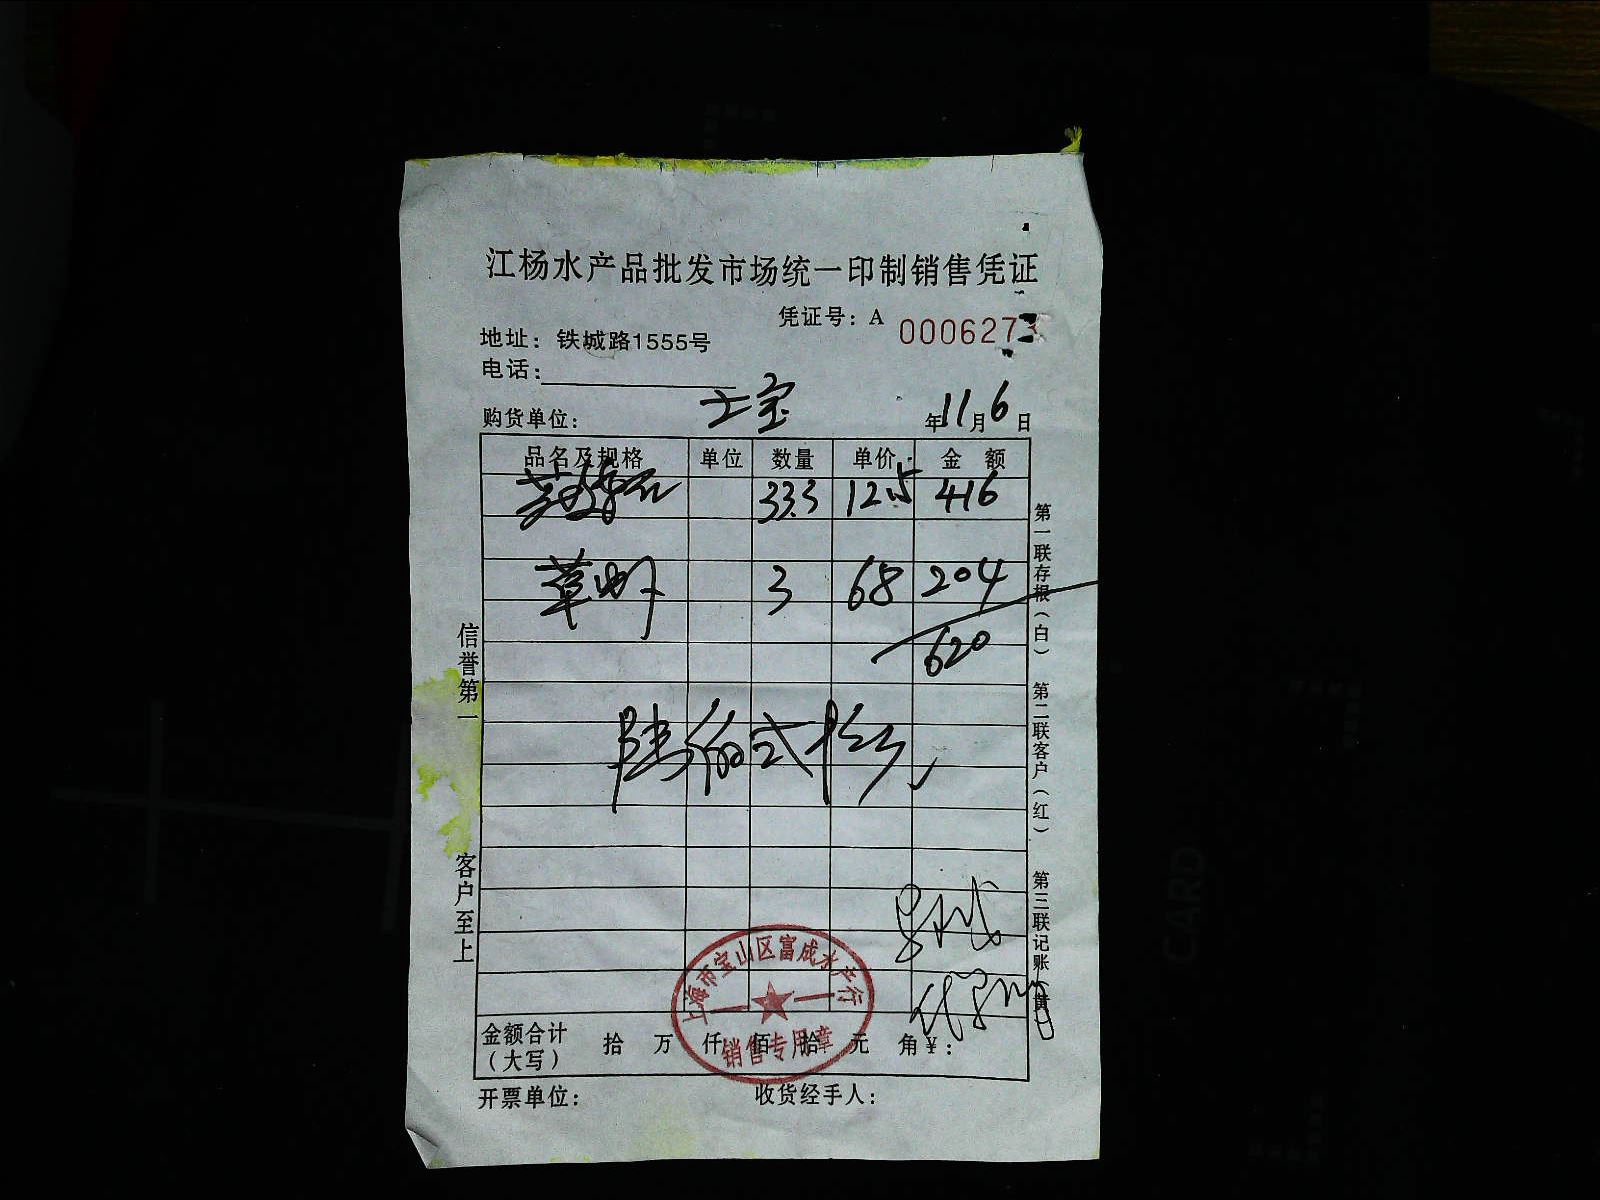 江杨水产品批发市场统一印制销售凭证
凭证号：A 000627
地址：铁城路1555号
电话：
购货单位： 士宝 年11月6日
品名及规格 单位 数量 单价 金额
33.3 12.5 416
草虾 3 68 204
620
陆佰贰拾元
信誉第一 客户至上
第一联存根（白） 第二联客户（红） 第三联记账（黄）
上海市宝山区富成水产行
销售专用章
金额合计（大写） 拾 万 仟 佰 拾 元 角 ¥：
开票单位： 收货经手人：